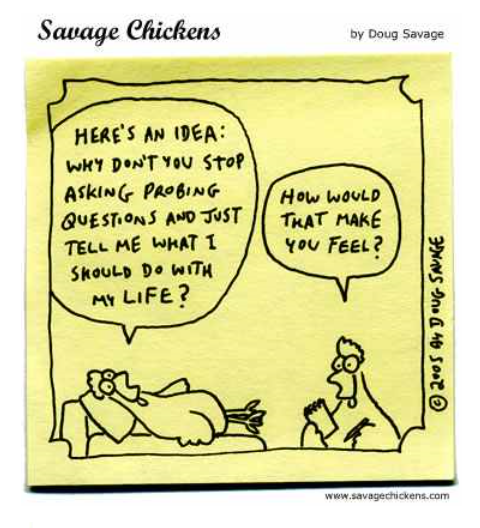 Savage Chickens
by Doug Savage
HERE'S AN IDEA:
WHY DON'T YOU STOP
ASKING PROBING
QUESTIONS AND JUST
TELL ME WHAT I
SHOULD DO WITH
MY LIFE?
HOW WOULD
THAT MAKE
YOU FEEL?
© 2005 BY DOUG SAVAGE
www.savagechickens.com